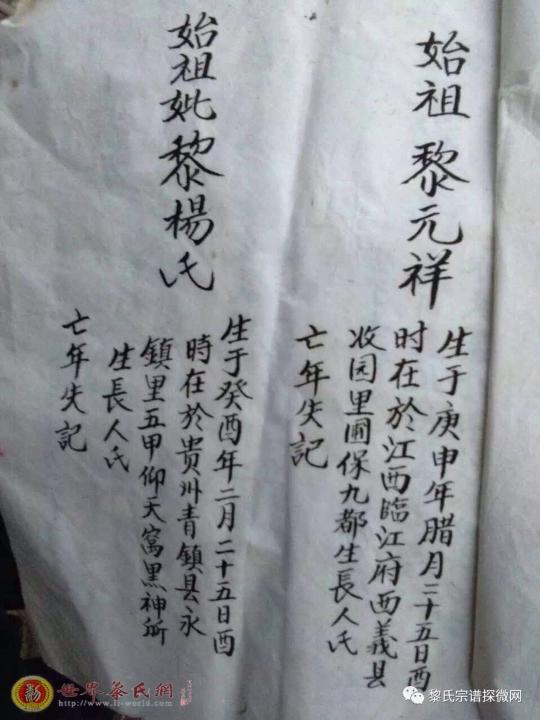 始祖 黎元祥
生于庚申年腊月二十五日酉
时在於江西臨江府西義县
收园里圃保九都生長人氏
亡年失記
始祖妣黎楊氏
生于癸酉年二月二十五日酉
時在於貴州青鎮县永
鎮里五甲仰天窩黑神所
生長人氏
亡年失記
世界黎氏網
www.li-world.com
黎氏宗谱探微网